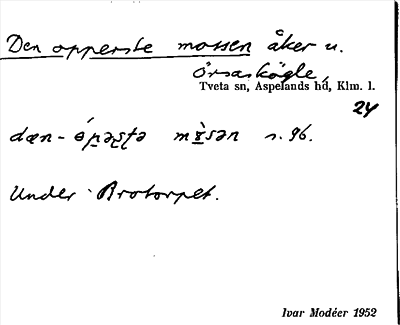 Den opperste mossen åker u.
Örsaskögle,
Tveta sn, Aspelands hd, Klm. l.
24
dæn - s. 96.
Under Brotorpet.
Ivar Modéer 1952